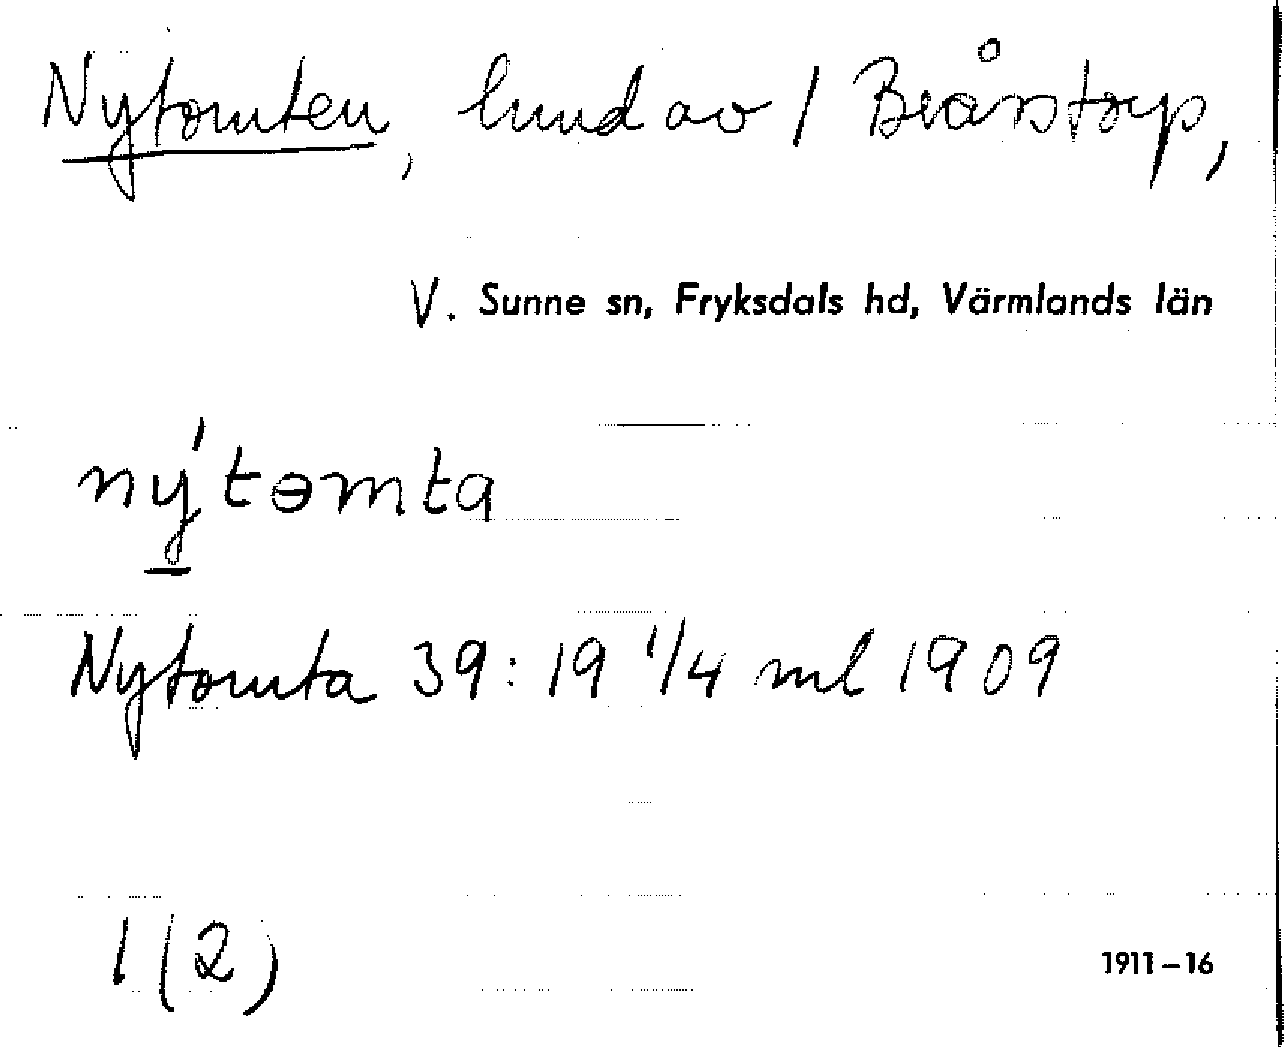 Nytomten, hmd av 1 Brårstorp,
V. Sunne sn, Fryksdals hd, Värmlands län
ný̲tɵmta
Nytomta 39:19 1/4 ml 1909
1 (2)
1911–16